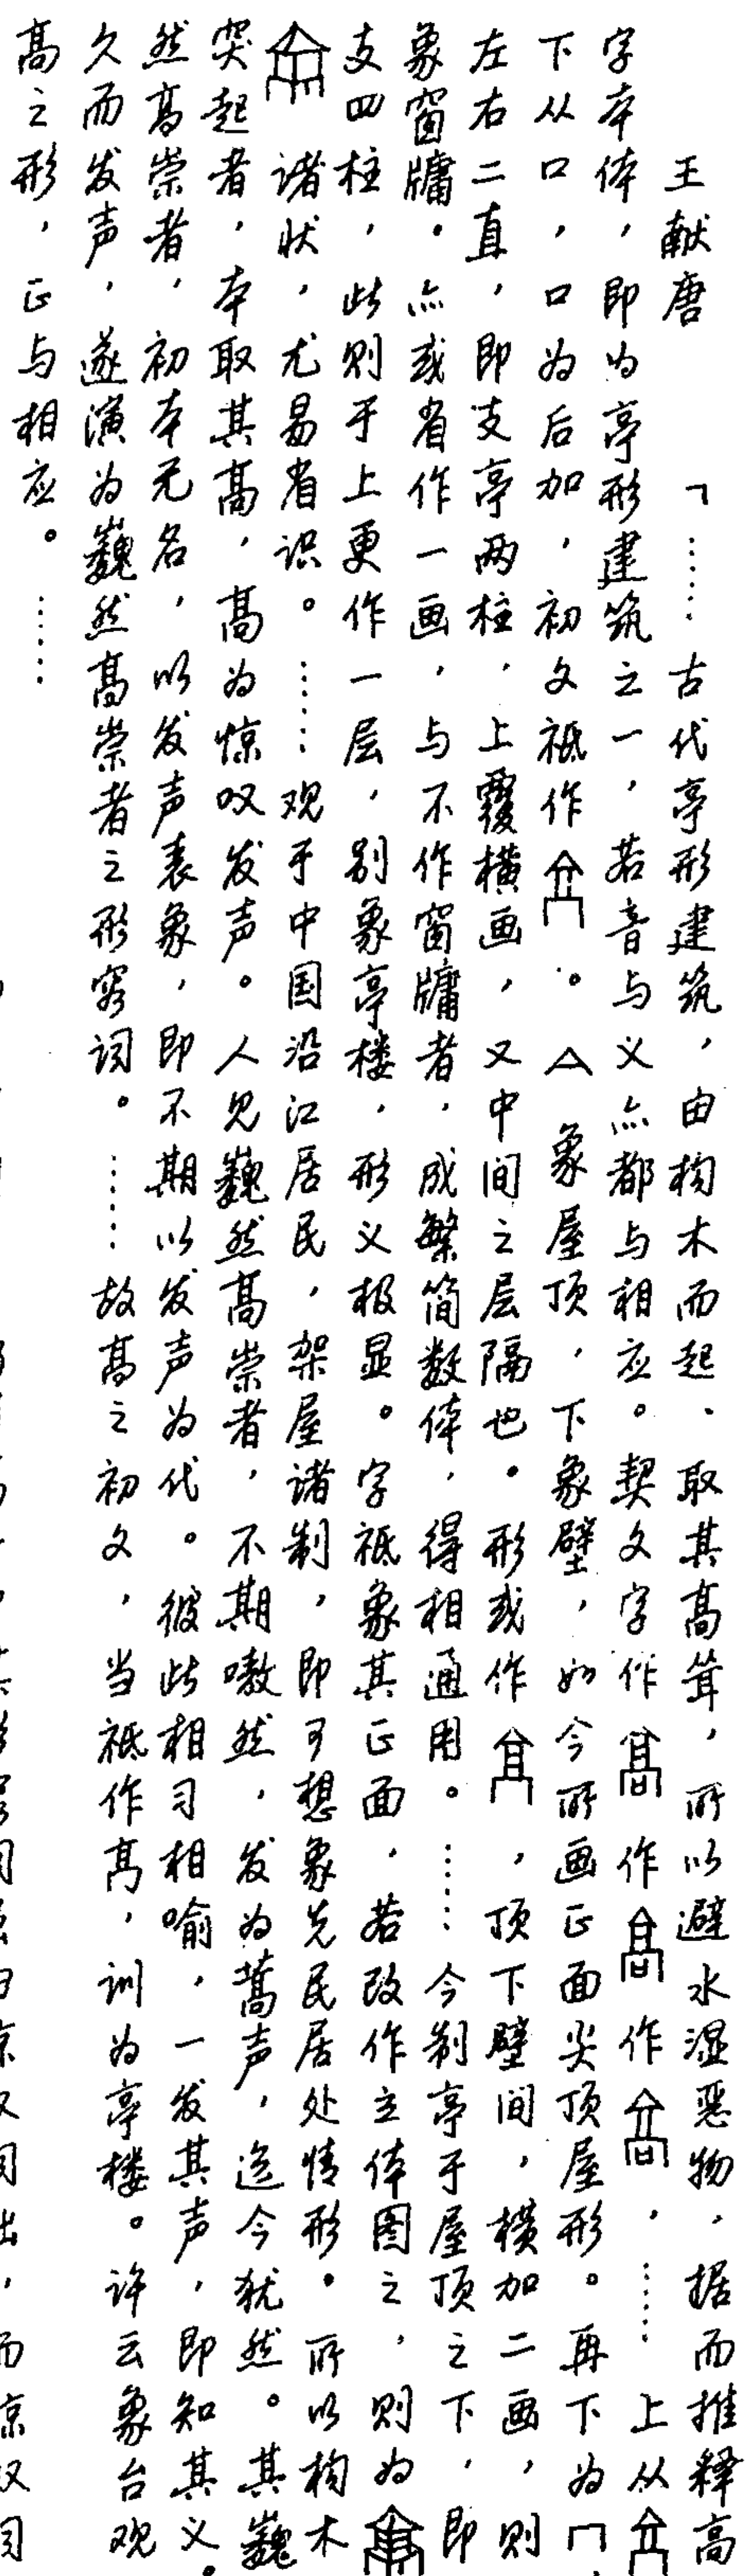 王献唐　「……古代亭形建筑，由构木而起、取其高耸，所以避水湿恶物，据而推释高
字本体，即为亭形建筑之一，若音与义亦都与相应。契文字作作作，……上从
下从口，口为后加，初文祗作。象屋顶，下象壁，如今所画正面尖顶屋形。再下为冂
左右二直，即支亭两柱，上覆横画，又中间之层隔也。形或作，顶下壁间，横加二画，则
象窗牖。亦或省作一画，与不作窗牖者，成繁简数体，得相通用。……今制亭于屋顶之下，即
支四柱，此则于上更作一层，别象亭楼，形义极显。字祗象其正面，若改作立体图之，则为
诸状，尤易省识。……观于中国沿江居民，架屋诸制，即可想象先民居处情形。所以构木
突起者，本取其高，高为惊叹发声。人见巍然高崇者，不期嗷然，发为蒿声，迄今犹然。其巍
然高崇者，初本无名，以发声表象，即不期以发声为代。彼此相习相喻，一发其声，即知其义。
久而发声，遂演为巍然高崇者之形容词。……故高之初文，当祗作髙，训为亭楼。许云象台观
高之形，正与相应。……